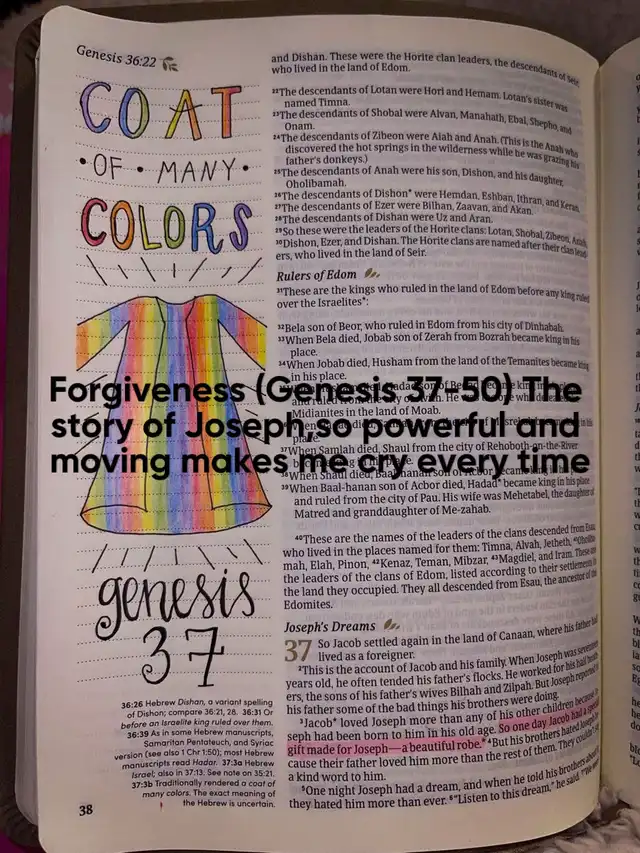 Genesis 36:22
COAT
• OF • MANY •
COLORS
genesis
37
36:26 Hebrew Dishan, a variant spelling
of Dishon; compare 36:21, 28. 36:31 Or
before an Israelite king ruled over them.
36:39 As in some Hebrew manuscripts,
Samaritan Pentateuch, and Syriac
version (see also 1 Chr 1:50); most Hebrew
manuscripts read Hadar. 37:3a Hebrew
Israel; also in 37:13. See note on 35:21.
37:3b Traditionally rendered a coat of
many colors. The exact meaning of
the Hebrew is uncertain.
38
and Dishan. These were the Horite clan leaders, the descendants of Seir,
who lived in the land of Edom.
22The descendants of Lotan were Hori and Hemam. Lotan's sister was
named Timna.
23The descendants of Shobal were Alvan, Manahath, Ebal, Shepho, and
Onam.
24The descendants of Zibeon were Aiah and Anah. (This is the Anah who
discovered the hot springs in the wilderness while he was grazing his
father's donkeys.)
25The descendants of Anah were his son, Dishon, and his daughter,
Oholibamah.
26The descendants of Dishon* were Hemdan, Eshban, Ithran, and Keran.
27The descendants of Ezer were Bilhan, Zaavan, and Akan.
28The descendants of Dishan were Uz and Aran.
29So these were the leaders of the Horite clans: Lotan, Shobal, Zibeon, Anah,
30Dishon, Ezer, and Dishan. The Horite clans are named after their clan lead-
ers, who lived in the land of Seir.
Rulers of Edom
31These are the kings who ruled in the land of Edom before any king ruled
over the Israelites*:
32Bela son of Beor, who ruled in Edom from his city of Dinhabah.
33When Bela died, Jobab son of Zerah from Bozrah became king in his
place.
34When Jobab died, Husham from the land of the Temanites became king
in his place.
Forgiveness (Genesis 37-50) | the
story of Joseph,so powerful and
moving makes me cry every time
Midianites in the land of Moab.
place.
37When Samlah died, Shaul from the city of Rehoboth-on-the-River
38When Shaul died, Baal-hanan son of Acbor became king
39When Baal-hanan son of Acbor died, Hadad* became king in his place
and ruled from the city of Pau. His wife was Mehetabel, the daughter of
Matred and granddaughter of Me-zahab.
40These are the names of the leaders of the clans descended from Esau,
who lived in the places named for them: Timna, Alvah, Jetheth, 41Oholiba-
mah, Elah, Pinon, 42Kenaz, Teman, Mibzar, 43Magdiel, and Iram. These are
the leaders of the clans of Edom, listed according to their settlements in
the land they occupied. They all descended from Esau, the ancestor of the
Edomites.
Joseph's Dreams
37 So Jacob settled again in the land of Canaan, where his father had
lived as a foreigner.
2This is the account of Jacob and his family. When Joseph was seventeen
years old, he often tended his father's flocks. He worked for his half brothers,
ers, the sons of his father's wives Bilhah and Zilpah. But Joseph reported
his father some of the bad things his brothers were doing.
3Jacob* loved Joseph more than any of his other children because
seph had been born to him in his old age. So one day Jacob had a special
gift made for Joseph—a beautiful robe.* 4But his brothers hated Joseph
cause their father loved him more than the rest of them. They couldn't say
a kind word to him.
5One night Joseph had a dream, and when he told his brothers about
they hated him more than ever. 6"Listen to this dream," he said.